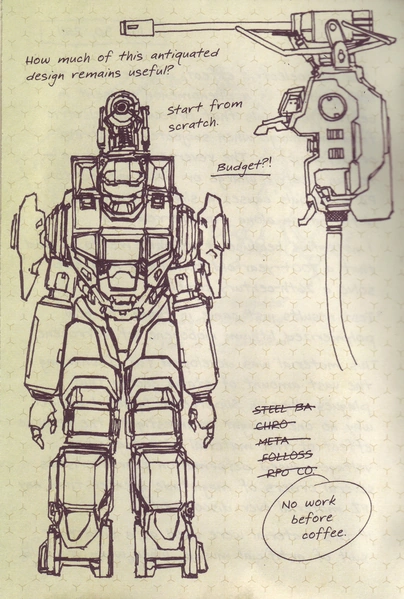 How much of this antiquated
design remains useful?
Start from
scratch.
Budget?!
STEEL BA
CHRO
META
FOLLOSS
RPO CO.
No work
before
coffee.